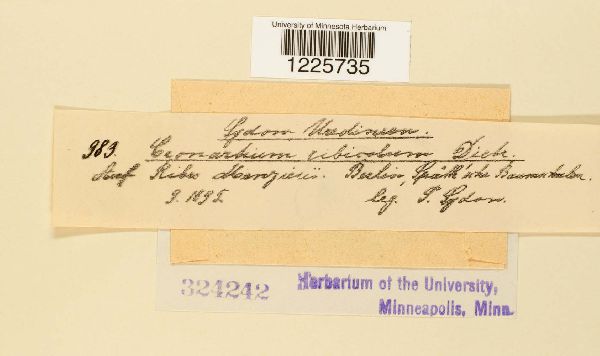 University of Minnesota Herbarium
1225735
Sydow, Uredineen.
983 Cronartium ribicolum Diet.
Auf Ribes Menziesii. Berlin, Späth'sche Baumschulen.
9. 1895 leg. P. Sydow.
324242
Herbarium of the University,
Minneapolis, Minn.